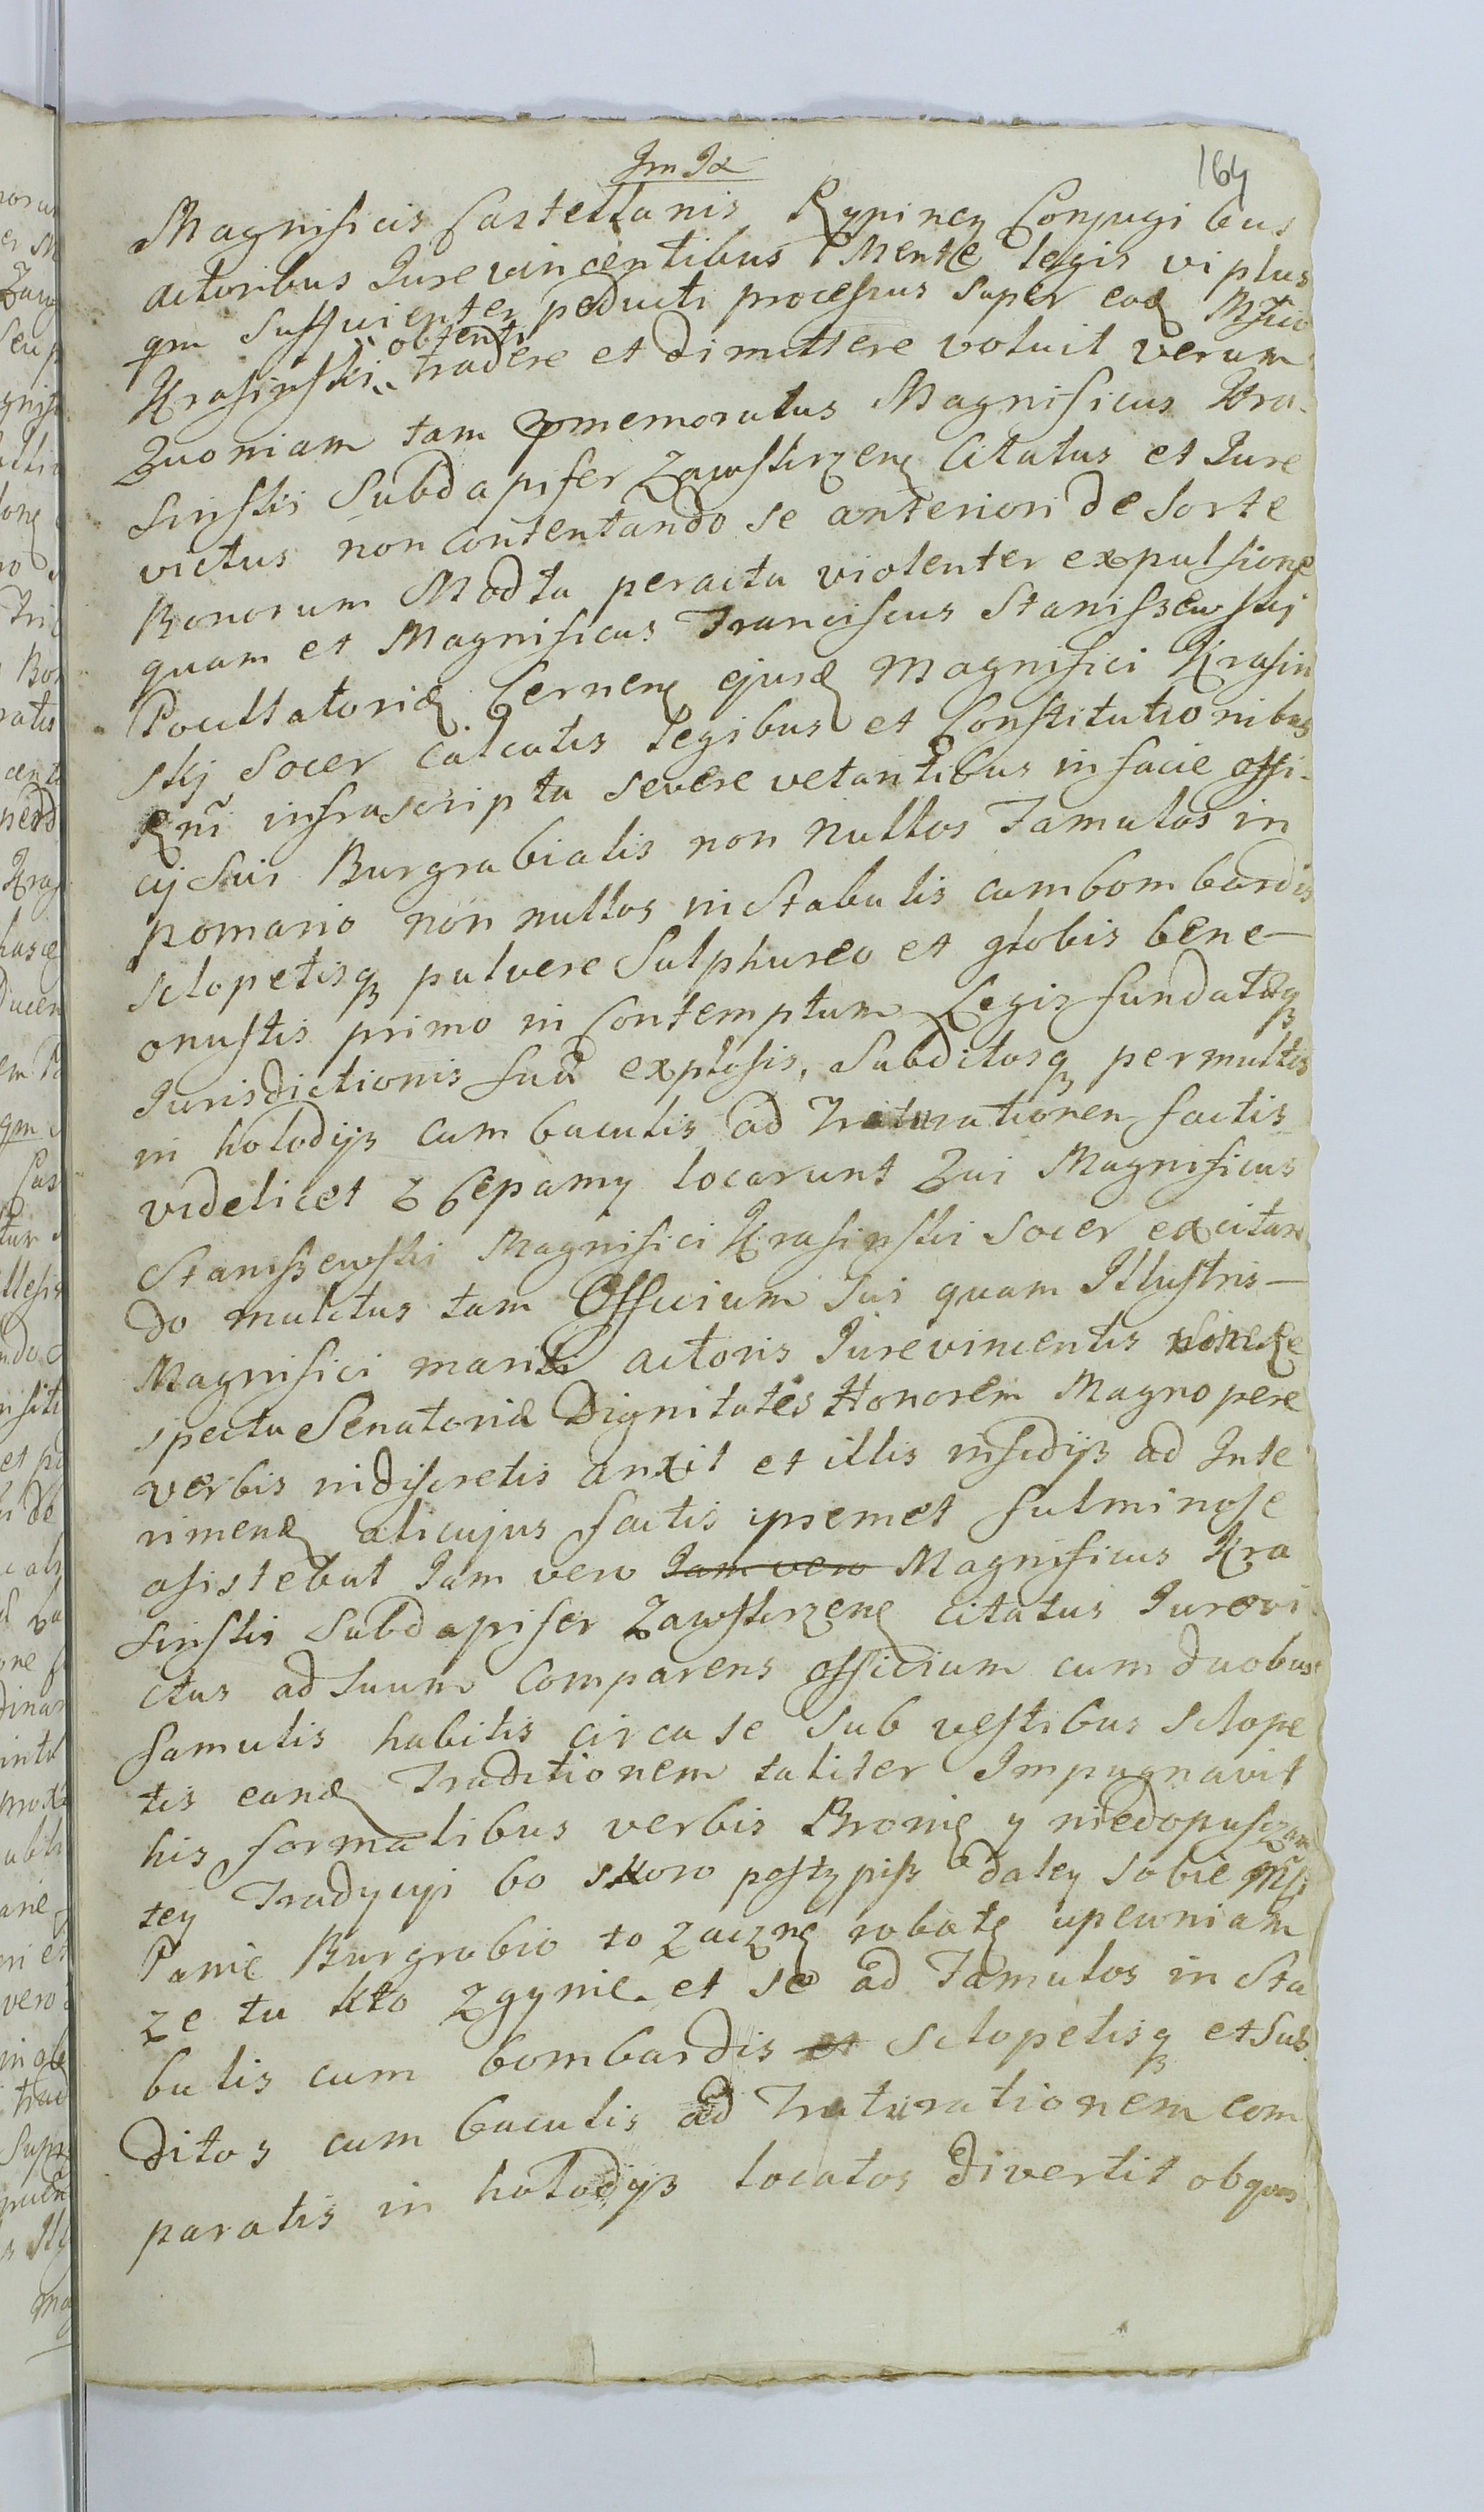 164
Magnificis Castellanis Rypinen Conjugibus
actoribus Jurevincentibus Mente legis vi plus
qm sufficienter peducti processus super eod Mfico
obtenti
Krasinski tradere et dimittere voluit verum
Quoniam tam pmemoratus Magnificus Kra-
sinski Subdapifer Zawskrzen Citatus et Jure
victus non contentando se anteriori de sorte
Bonorum Modta peracta violenter expulsione
quam et Magnificus Franciscus Staniszewskj
Pocillatorid Cernen ejusd Magnifici Krasin
skj Socer calcatis legibus et Constitutionibus
Rni infrascripta severe vetantibus in facie offi-
cij Sui Burgrabialis non nullos Famulos in
pomario non nullos in Stabulis cum bombardis
sclopetisq pulvere Sulphureo et globis bene
onustis primo in Contemptum Legis fundatæq
Jurisdictionis suæ explosis, Subditosq permultos
in holodijs cum baculis ad Triturationem factis
videlicet z Cepamy locarunt Qui Magnificus
Staniszewski Magnifici Krasinski Socer excitan
do multus tam Officium Sui quam Illustris
Magnifici mariti actoris Jurevincentis sine re
spectu Senatoriæ Dignitates Honorem Magnopere
verbis indiscretis anxit et illis insidijs ad Inte
rimend alicujus factis ipsemet fulminose
asistebat Jam vero Jam vero Magnificus Kra
sinski Subdapifer Zawskrzen Citatus Jurevi
ctus ad suum Comparens officium cum duobus
famulis habitis circa se Sub vestibus Sclope
tis eand Traditionem taliter Impugnavit
his formalibus verbis Bronię y niedopuszczam
tey Tradycyi bo skoro postąpisz daley sobie
Panie Burgrabio to zaczne robotę upewniam
ze tu kto zgynie et se ad Famulos in Sta
bulis cum bombardis et sclopetisq et Sub
ditos cum baculis ad Triturationem com
paratis in holodijs locatos divertit ob quas